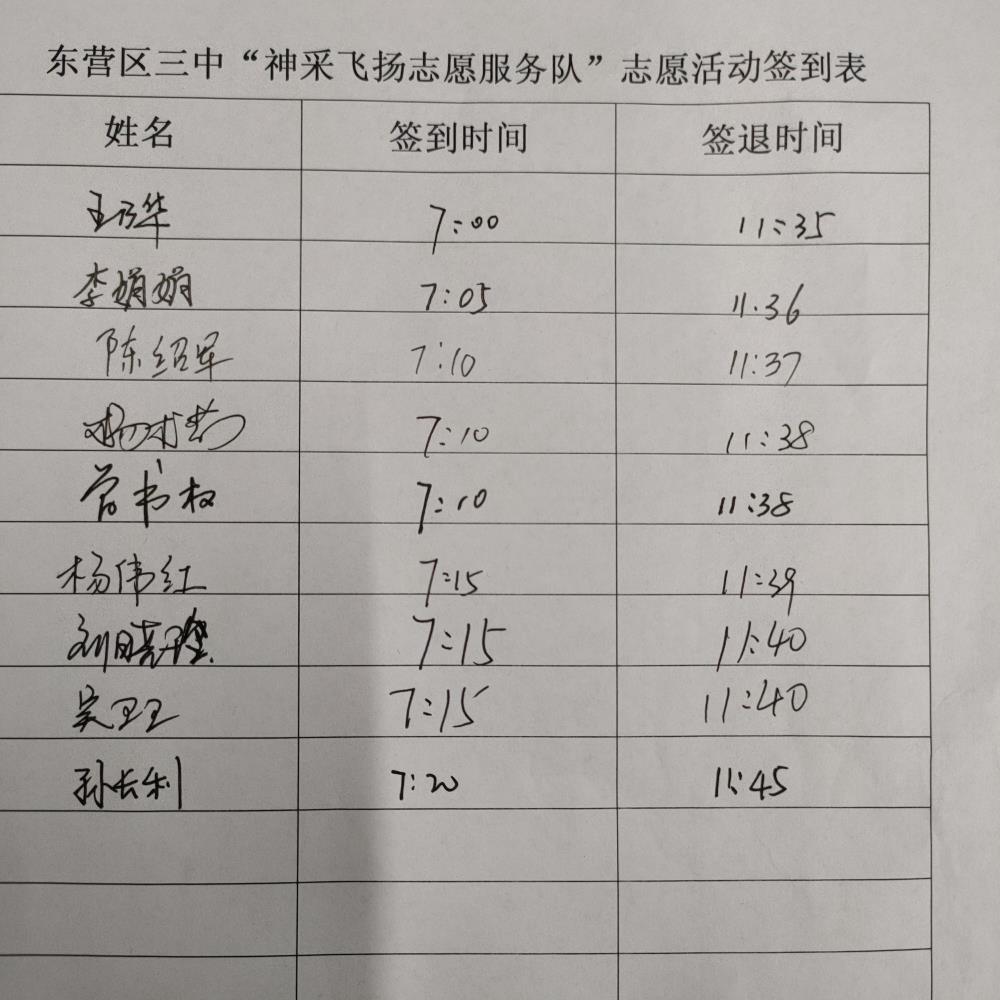 东营区三中“神采飞扬志愿服务队”志愿活动签到表
姓名 签到时间 签退时间
王乃华 7:00 11:35
李娟娟 7:05 11:36
陈绍军 7:10 11:37
杨 7:10 11:38
管书权 7:10 11:38
杨伟红 7:15 11:39
刘晓 7:15 11:40
吴卫卫 7:15 11:40
孙长利 7:20 11:45